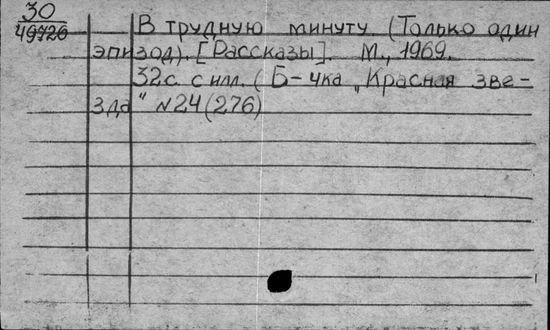 30
49726
В трудную минуту. (Только один
эпизод). [Рассказы]. М., 1969.
32с. с илл. (Б-чка „Красная зве-
зда" №24(276)